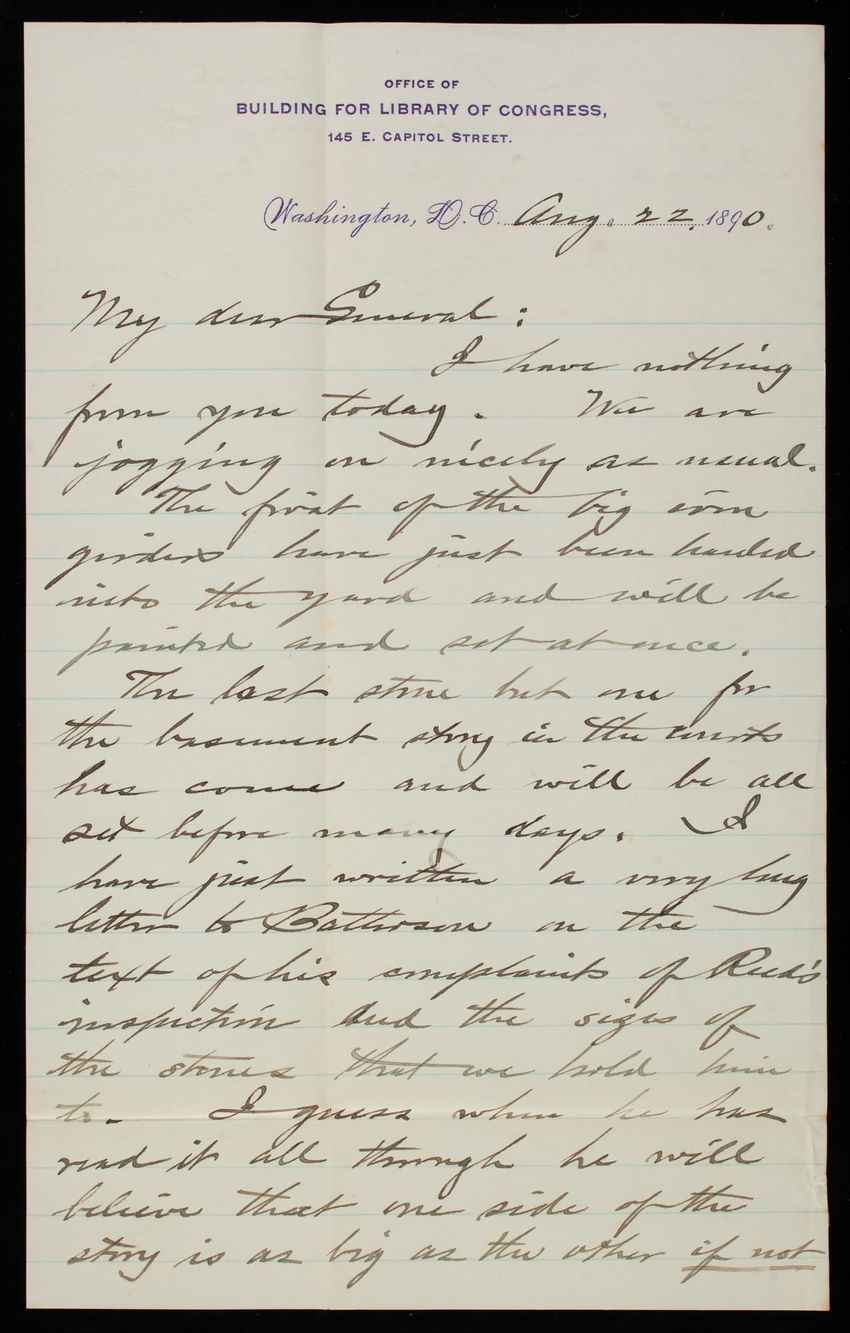 OFFICE OF
BUILDING FOR LIBRARY OF CONGRESS,
145 E. CAPITOL STREET.
Washington, D.C. Aug. 22, 1890.
My dear General:
I have nothing
from you today. We are
jogging on nicely as usual.
The first of the big iron
girders have just been hauled
into the yard and will be
painted and set at once.
The last stone but one for
the basement story in the courts
has come and will be all
set before many days. I
have just written a very long
letter to Batterson on the
text of his complaints of Reed's
inspection and the sizes of
the stones that we hold him
to. I guess when he has
read it all through he will
believe that one side of the
story is as big as the other if not